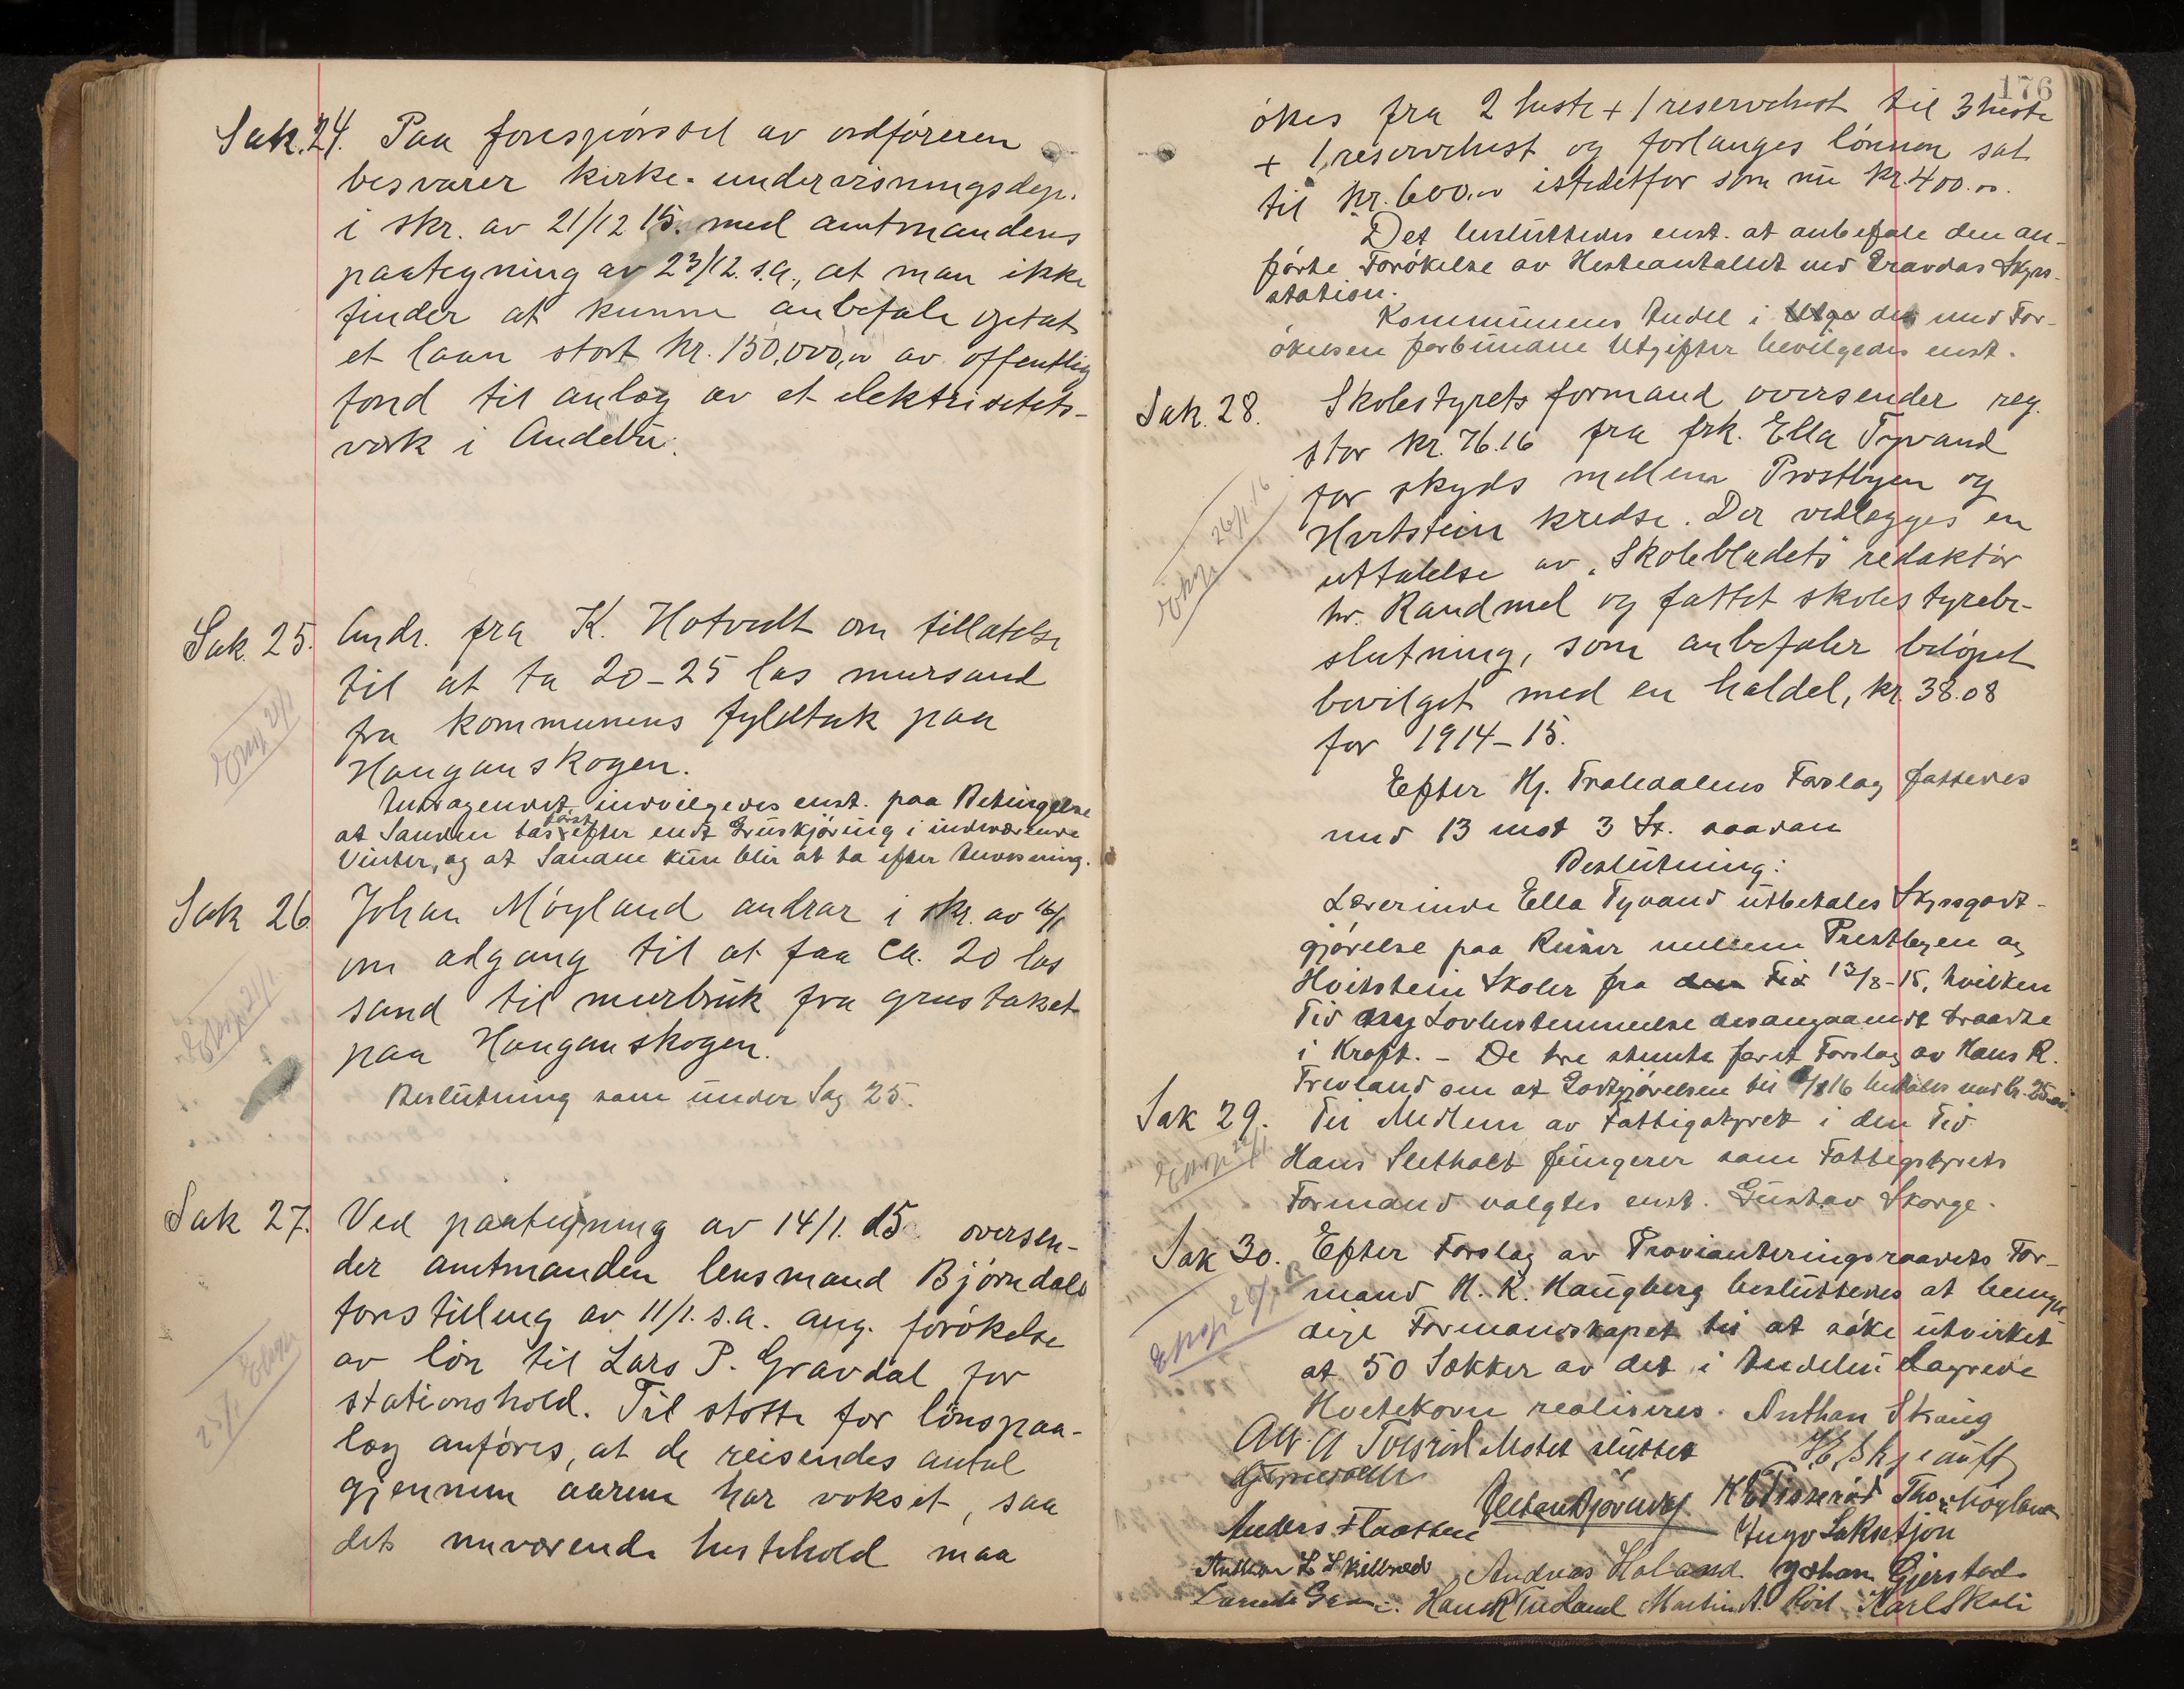 Sak. 24. Paa forespiørssel av ordføreren
besvarer kirke- undervisningsdep.
i skr. av 21/12 15. med amtmandens
paategning av 23/12. s.a., at man ikke
finder at kunne anbefale optat
et laan stort kr. 150,000,00 av offentlig
fond til anlæg av et elektrisitets-
verk i Andebu.
Sak. 25. Andr. fra K. Hotvedt om tillatelse
til at ta 20-25 las mursand
fra kommunens fyldtak paa
Hauganskogen.
Andragendet indvilgedes enst. paa Betingelse
at Sanden tas først efter endt Gruskjøring i indværende
Vinter, og at Sanden kun blir at ta efter Anvisning.
Sak 26. Johan Møyland andrar i skr. av 16/1
om adgang til at faa ca. 20 las
sand til murbruk fra grustaket
paa Hauganskogen.
Beslutning som under Sag 25.
Sak 27. Ved paategning av 14/1. 15. oversen-
der amtmanden lensmand Bjørndals
forestilling av 11/1. s.a. ang. forøkelse
av løn til Lars P. Gravdal for
stationshold. Til støtte for lønspaa-
læg anføres, at de reisendes antal
gjennem aarene har vokset, saa
det nuværende hestehold maa
176
økes fra 2 heste + 1 reservehest til 3 heste
+ 1 reservehest og forlanges lønnen sat
til kr. 600.00 istedetfor som nu kr. 400.00.
Det besluttedes enst. at anbefale den an-
førte Forøkelse av Hesteantallet ved Gravdas Skyss-
station.
Kommunens Andel i de med For-
økelsen forbundne Utgifter bevilgedes enst.
Sak. 28. Skolestyrets formand oversender reg.
stor kr. 76.16 fra frk. Ella Tyvand
for skyds mellem Prestbyen og
Hvitstein kredse. Der vedlægges en
uttalelse av "Skolebladets" redaktør
hr. Randmel og fattet skolestyrebe-
slutning, som anbefaler beløpet
bevilget med en haldel, kr. 38.08
for 1914-15.
Efter Hj. Trolldalens Forslag fattedes
med 13 mot 3 St. saadan
Beslutning:
Lærerinde Ella Tyvand utbetales Skyssgodt-
gjørelse paa Reiser mellem Prestbyen og
Hvitstein Skoler fra den Tid 13/8-15, hvilken
Tid ny Lovbestemmelse desangaaende traadte
i Kraft. - De tre stemte for et Forslag av Hans R.
Trevland om at Godtgjørelsen til 16 betales med kr. 25.00.
Sak 29. Til Medlem av Fattigstyret i den Tid
Hans Sletholt fungerer som Fattigstyrets
Formand valgtes enst. Gustav Skorge.
Sak 30. Efter Forslag av Provianteringsraadets For-
mand H. K. Haugberg besluttedes at bemyn-
dige Formandskapet til at søke utvirket
at 50 Sækker av det i Andebu lagrede
Hvetekorn realiseres. Anthon Skaug
Møtet sluttet
Anders Flaatten
Andreas Holand Johan Gjerstad
Hans R Trevland Martin A. Karl Skoli